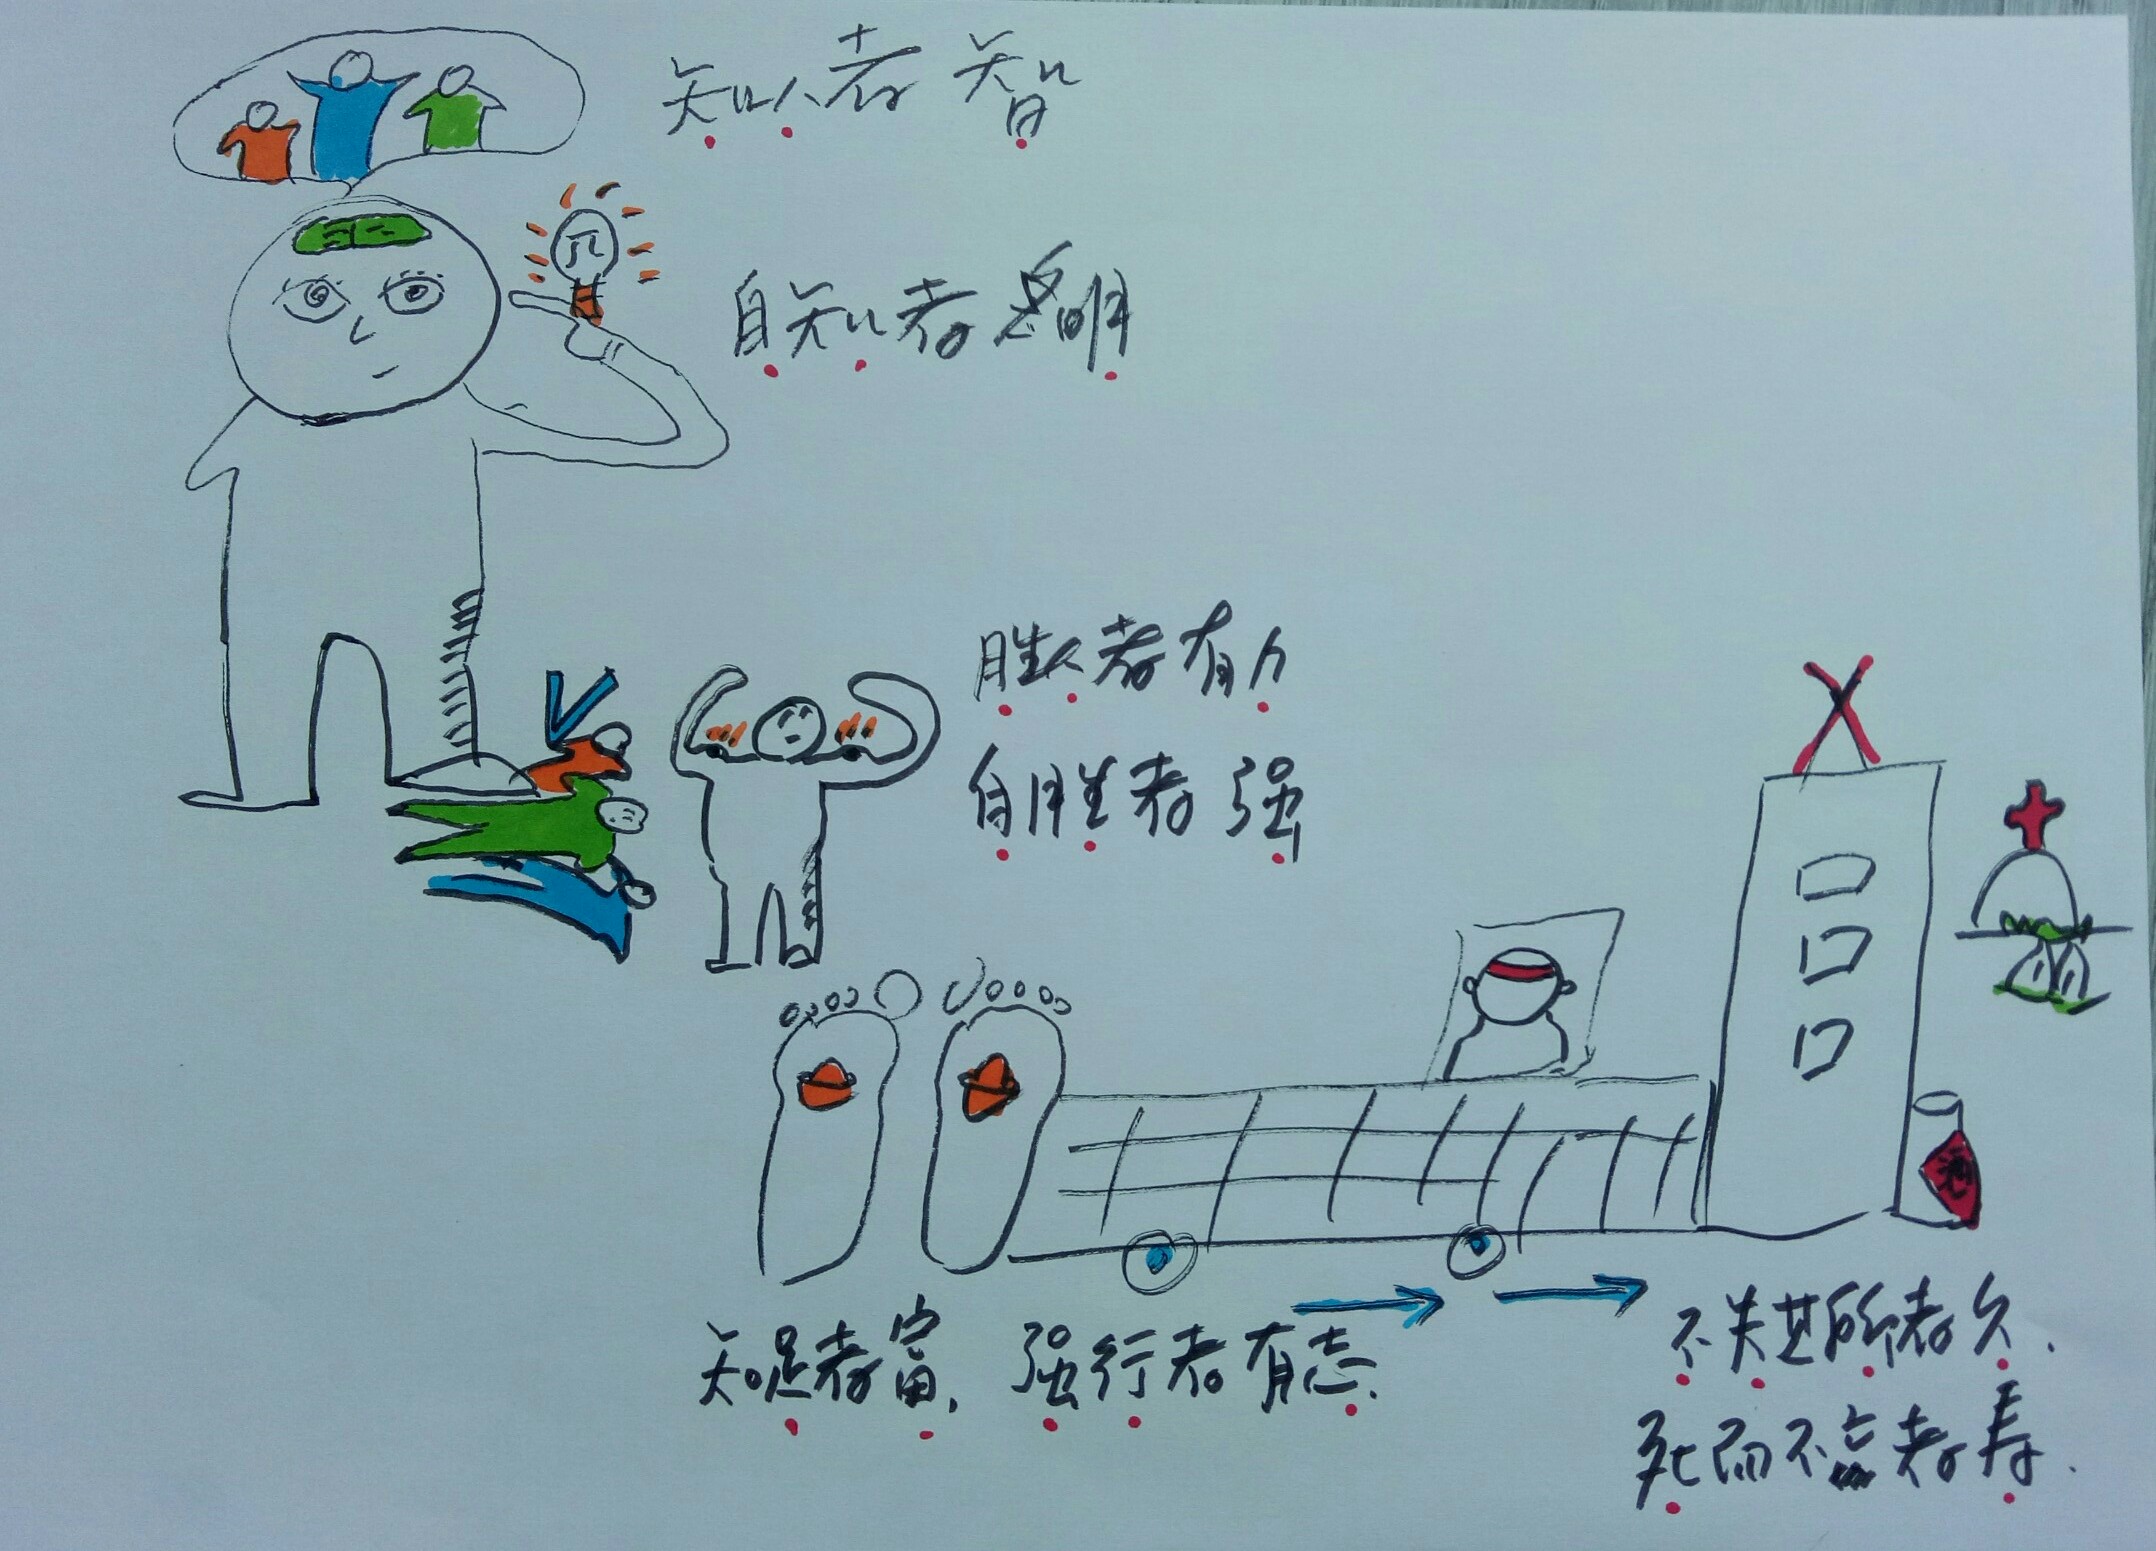 知人者智
π
自知者明
胜人者有力
自胜者强
酒
知足者富，强行者有志.
不失其所者久.
死而不亡者寿.